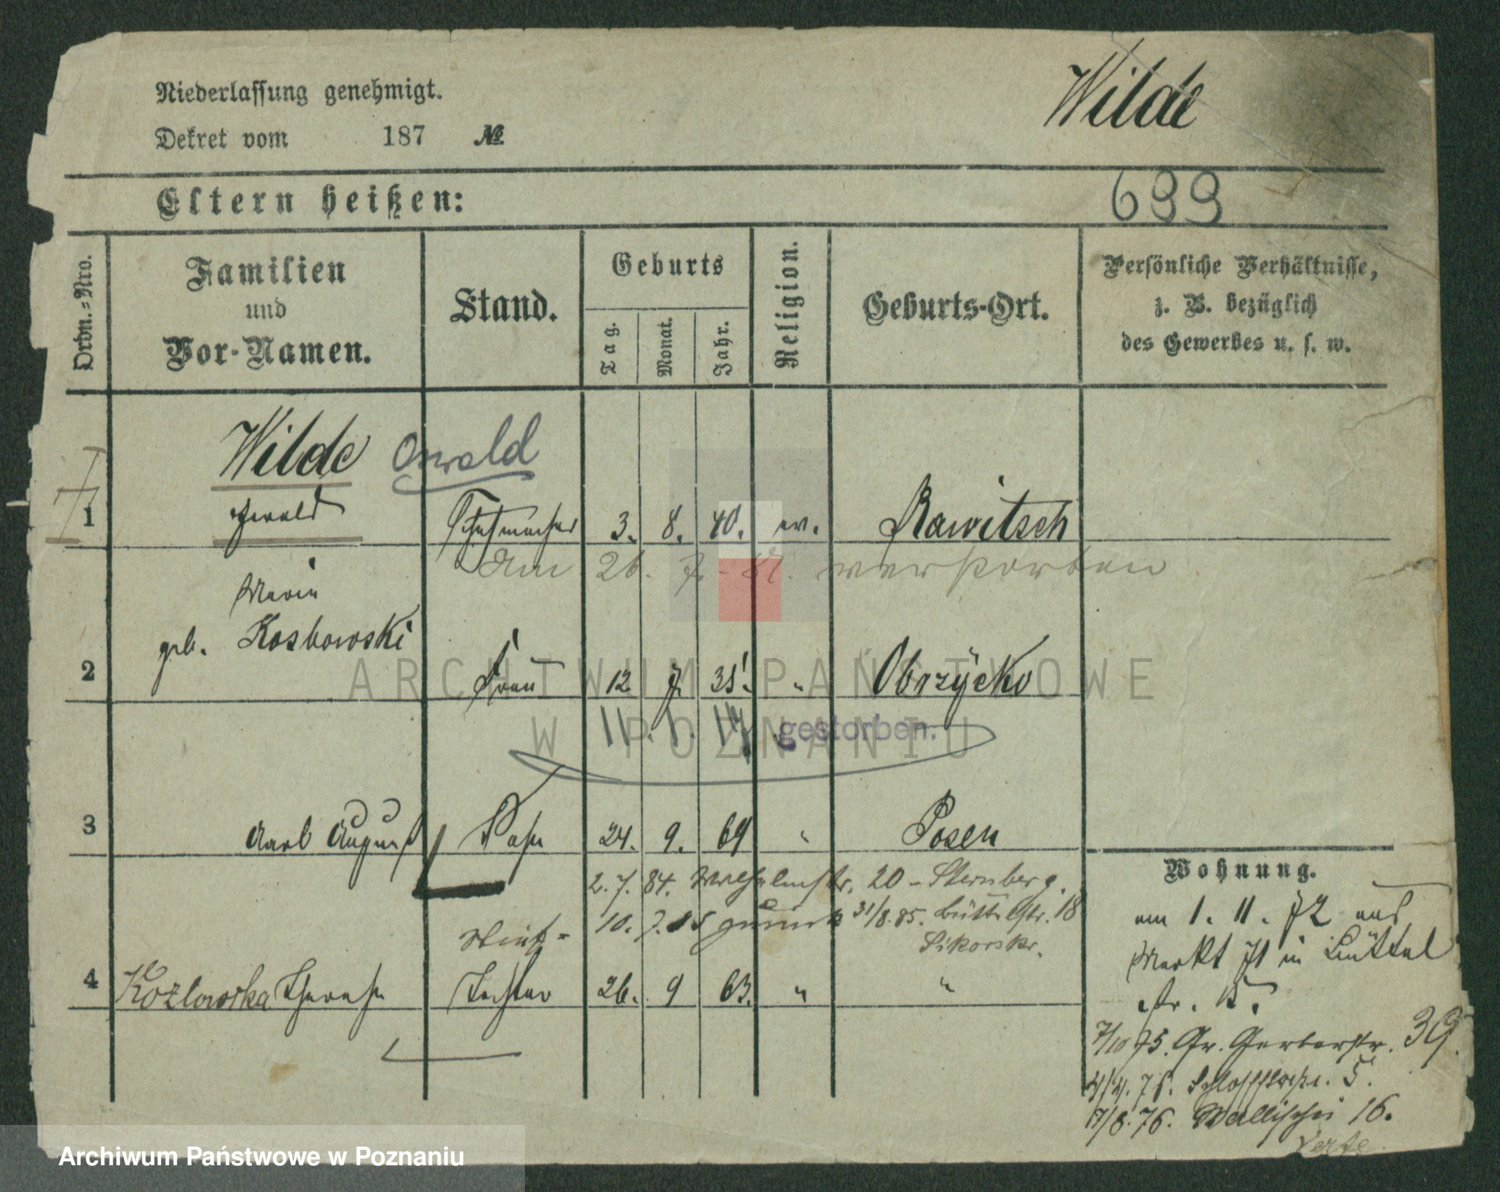 Niederlassung genehmigt.
Dekret vom 187 №
Wilde
Eltern heißen:
699
Ordn.-Nro.
Familien
und
Vor-Namen.
Stand.
Geburts
Tag.
Monat.
Jahr.
Religion.
Geburts-Ort.
Persönliche Verhältnisse,
z. B. bezüglich
des Gewerbes u. s. w.
Wilde Oswald
1 Schuhmacher 3. 8. 40. ev. Rawitsch
Am 26. 7. verstorben
Maria
geb. Koskowski
2 Frau 12 7 35. " Obrzycko
11. 1. 14 gestorben.
3 Karl August Sohn 24. 9. 69 " Posen
2. 7. 84. Wilhelmstr. 20 - Sternberg.
10. 7. 85 31/8. 85. Büttelstr. 18
Sikorski.
Stief-
4 Kozlowska Therese Tochter 26. 9 63. " "
Wohnung.
am 1. 11. 72 aus
Markt 71 in Büttel
str. 15.
7/10 75. Gr. Gerberstr. 39.
76. 5.
17/8. 76. Wallischei 16.
ARCHIWUM PAŃSTWOWE
W POZNANIU
Archiwum Państwowe w Poznaniu